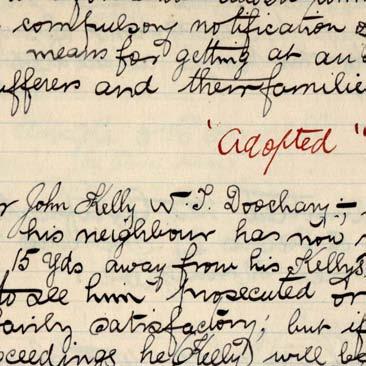 compulsory notification
means for getting at au
ufferers and their familie
"Adopted"
John Kelly W. T. Doochary :-
his neighbour has now
15 Yds away from his (Kelly's
to see him prosecuted or
fairly satisfactory; but if
oceedings he (Kelly) will be